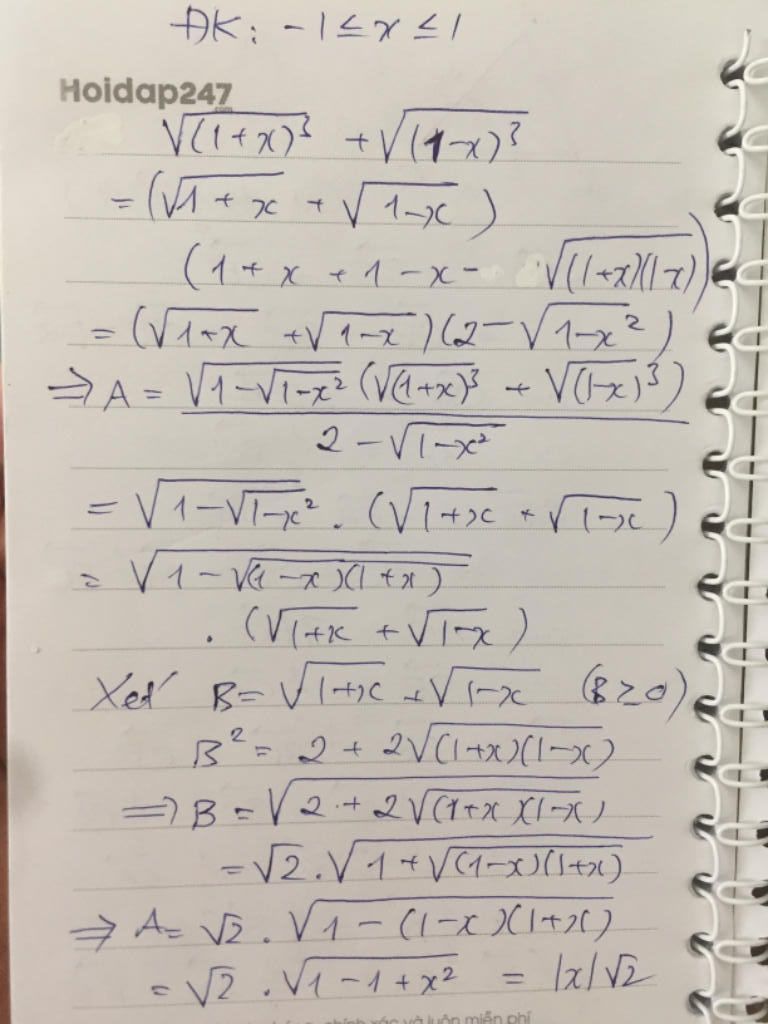 ĐK: -1 ≤ x ≤ 1
Hoidap247
.com
√(1+x)³ + √(1-x)³
= (√1+x + √1-x)
(1 + x + 1 - x - √(1+x)(1-x))
= (√1+x + √1-x)(2 - √1-x²)
⇒ A = √1-√1-x² (√(1+x)³ + √(1-x)³)
2 - √1-x²
= √1-√1-x² . (√1+x + √1-x)
= √1-√(1-x)(1+x)
. (√1+x + √1-x)
Xét B = √1+x + √1-x (B ≥ 0)
B² = 2 + 2√(1+x)(1-x)
⇒ B = √2 + 2√(1+x)(1-x)
= √2 . √1+√(1-x)(1+x)
⇒ A = √2 . √1-(1-x)(1+x)
= √2 . √1-1+x² = |x|√2
chính xác và luôn miễn phí